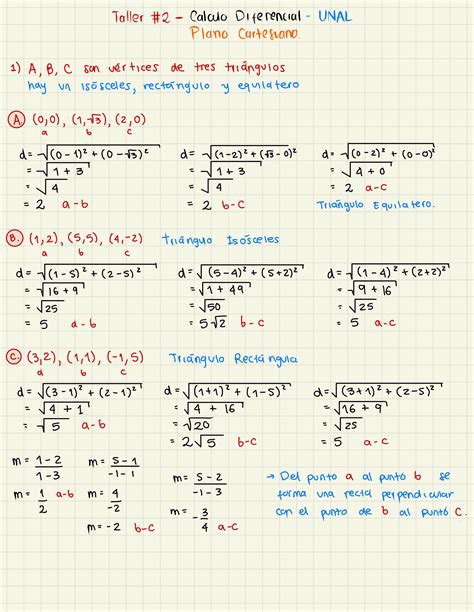 Taller #2 - Calculo Diferencial - UNAL
Plano Cartesiano
1) A, B, C son vértices de tres triángulos
hay un isósceles, rectángulo y equilatero
A. (0,0), (1,√3), (2,0)
a b c
d = √(0-1)² + (0-√3)² d = √(1-2)² + (√3-0)² d = √(0-2)² + (0-0)²
= √1 + 3 = √1 + 3 = √4 + 0
= √4 = √4 = 2 a-c
= 2 a-b = 2 b-c Triángulo Equilatero.
B. (1,2), (5,5), (4,-2) Triánguo Isósceles
a b c
d = √(1-5)² + (2-5)² d = √(5-4)² + (5+2)² d = √(1-4)² + (2+2)²
= √16 + 9 = √1 + 49 = √9 + 16
= √25 = √50 = √25
= 5 a-b = 5√2 b-c = 5 a-c
C. (3,2), (1,1), (-1,5) Triángulo Rectángula
a b c
d = √(3-1)² + (2-1)² d = √(1+1)² + (1-5)² d = √(3+1)² + (2-5)²
= √4 + 1 = √4 + 16 = √16 + 9
= √5 a-b = √20 = √25
= 2√5 b-c = 5 a-c
m = 1-2/1-3 m = 5-1/-1-1 m = 5-2/-1-3
m = 1/2 a-b m = 4/-2 m = -3/4 a-c
m = -2 b-c
→ Del punto a al punto b se
forma una recta perpendicular
con el punto de b al punto c.